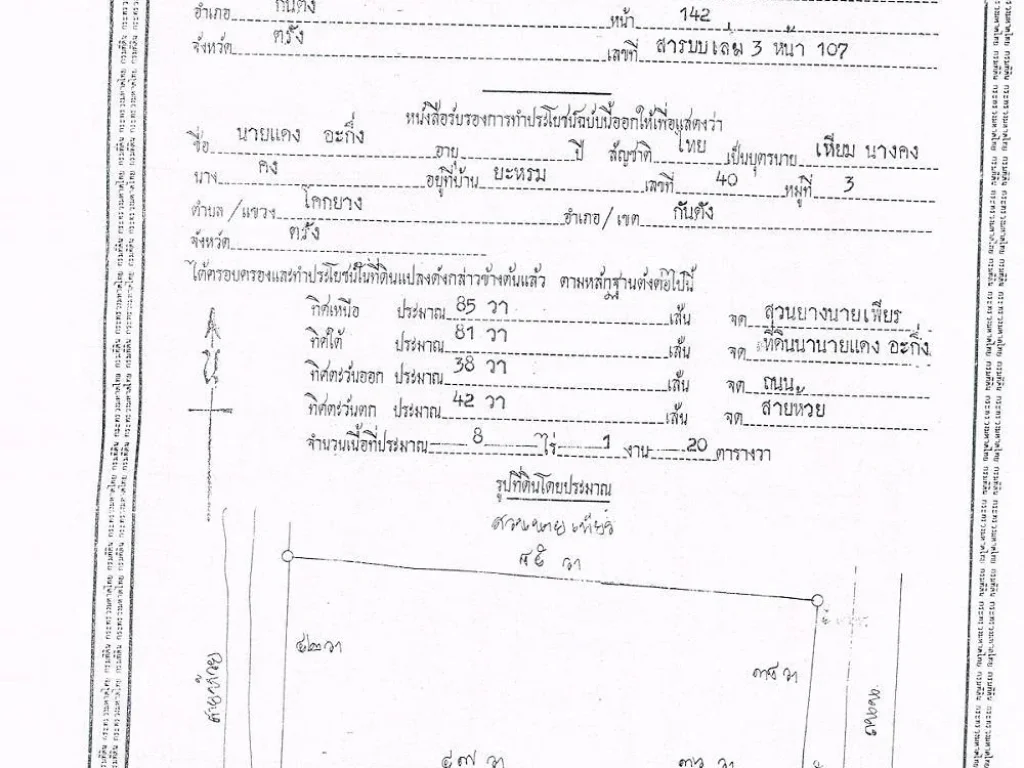 อำเภอ กันตัง หน้า 142
จังหวัด ตรัง เลขที่ สารบบเล่ม 3 หน้า 107
หนังสือรับรองการทำประโยชน์ฉบับนี้ออกให้เพื่อแสดงว่า
ชื่อ นายแดง อะกิ่ง อายุ ปี สัญชาติ ไทย เป็นบุตรนาย เหียม นางคง
นาง คง อยู่ที่บ้าน ยะหรม เลขที่ 40 หมู่ที่ 3
ตำบล/แขวง โคกยาง อำเภอ/เขต กันตัง
จังหวัด ตรัง
ได้ครอบครองและทำประโยชน์ในที่ดินแปลงดังกล่าวข้างต้นแล้ว ตามหลักฐานดังต่อไปนี้
ทิศเหนือ ประมาณ 85 วา เส้น จด สวนยางนายเพียร
ทิศใต้ ประมาณ 81 วา เส้น จด ที่ดินนานายแดง อะกิ่ง
ทิศตะวันออก ประมาณ 38 วา เส้น จด ถนน
ทิศตะวันตก ประมาณ 42 วา เส้น จด สายห้วย
จำนวนเนื้อที่ประมาณ 8 ไร่ 1 งาน 20 ตารางวา
รูปที่ดินโดยประมาณ
๘๕ วา
๔๒ วา
๓๘ วา
สายห้วย
ถนน